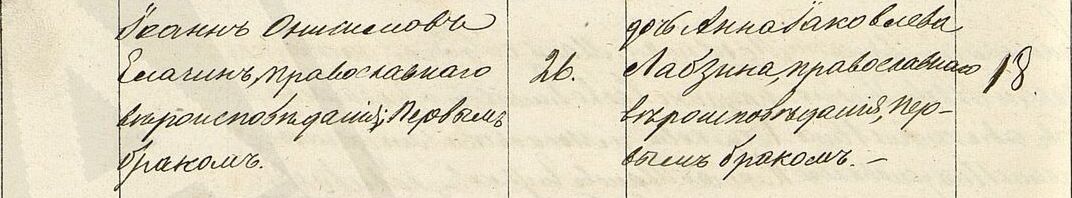 Іоаннъ Онисимовъ
Елачинъ, православнаго
вѣроисповѣданія; Первымъ
бракомъ.
26.
дочь Анна Іаковлева
Лабзина, православнаго
вѣроисповѣданія, Пер-
вымъ бракомъ. –
18